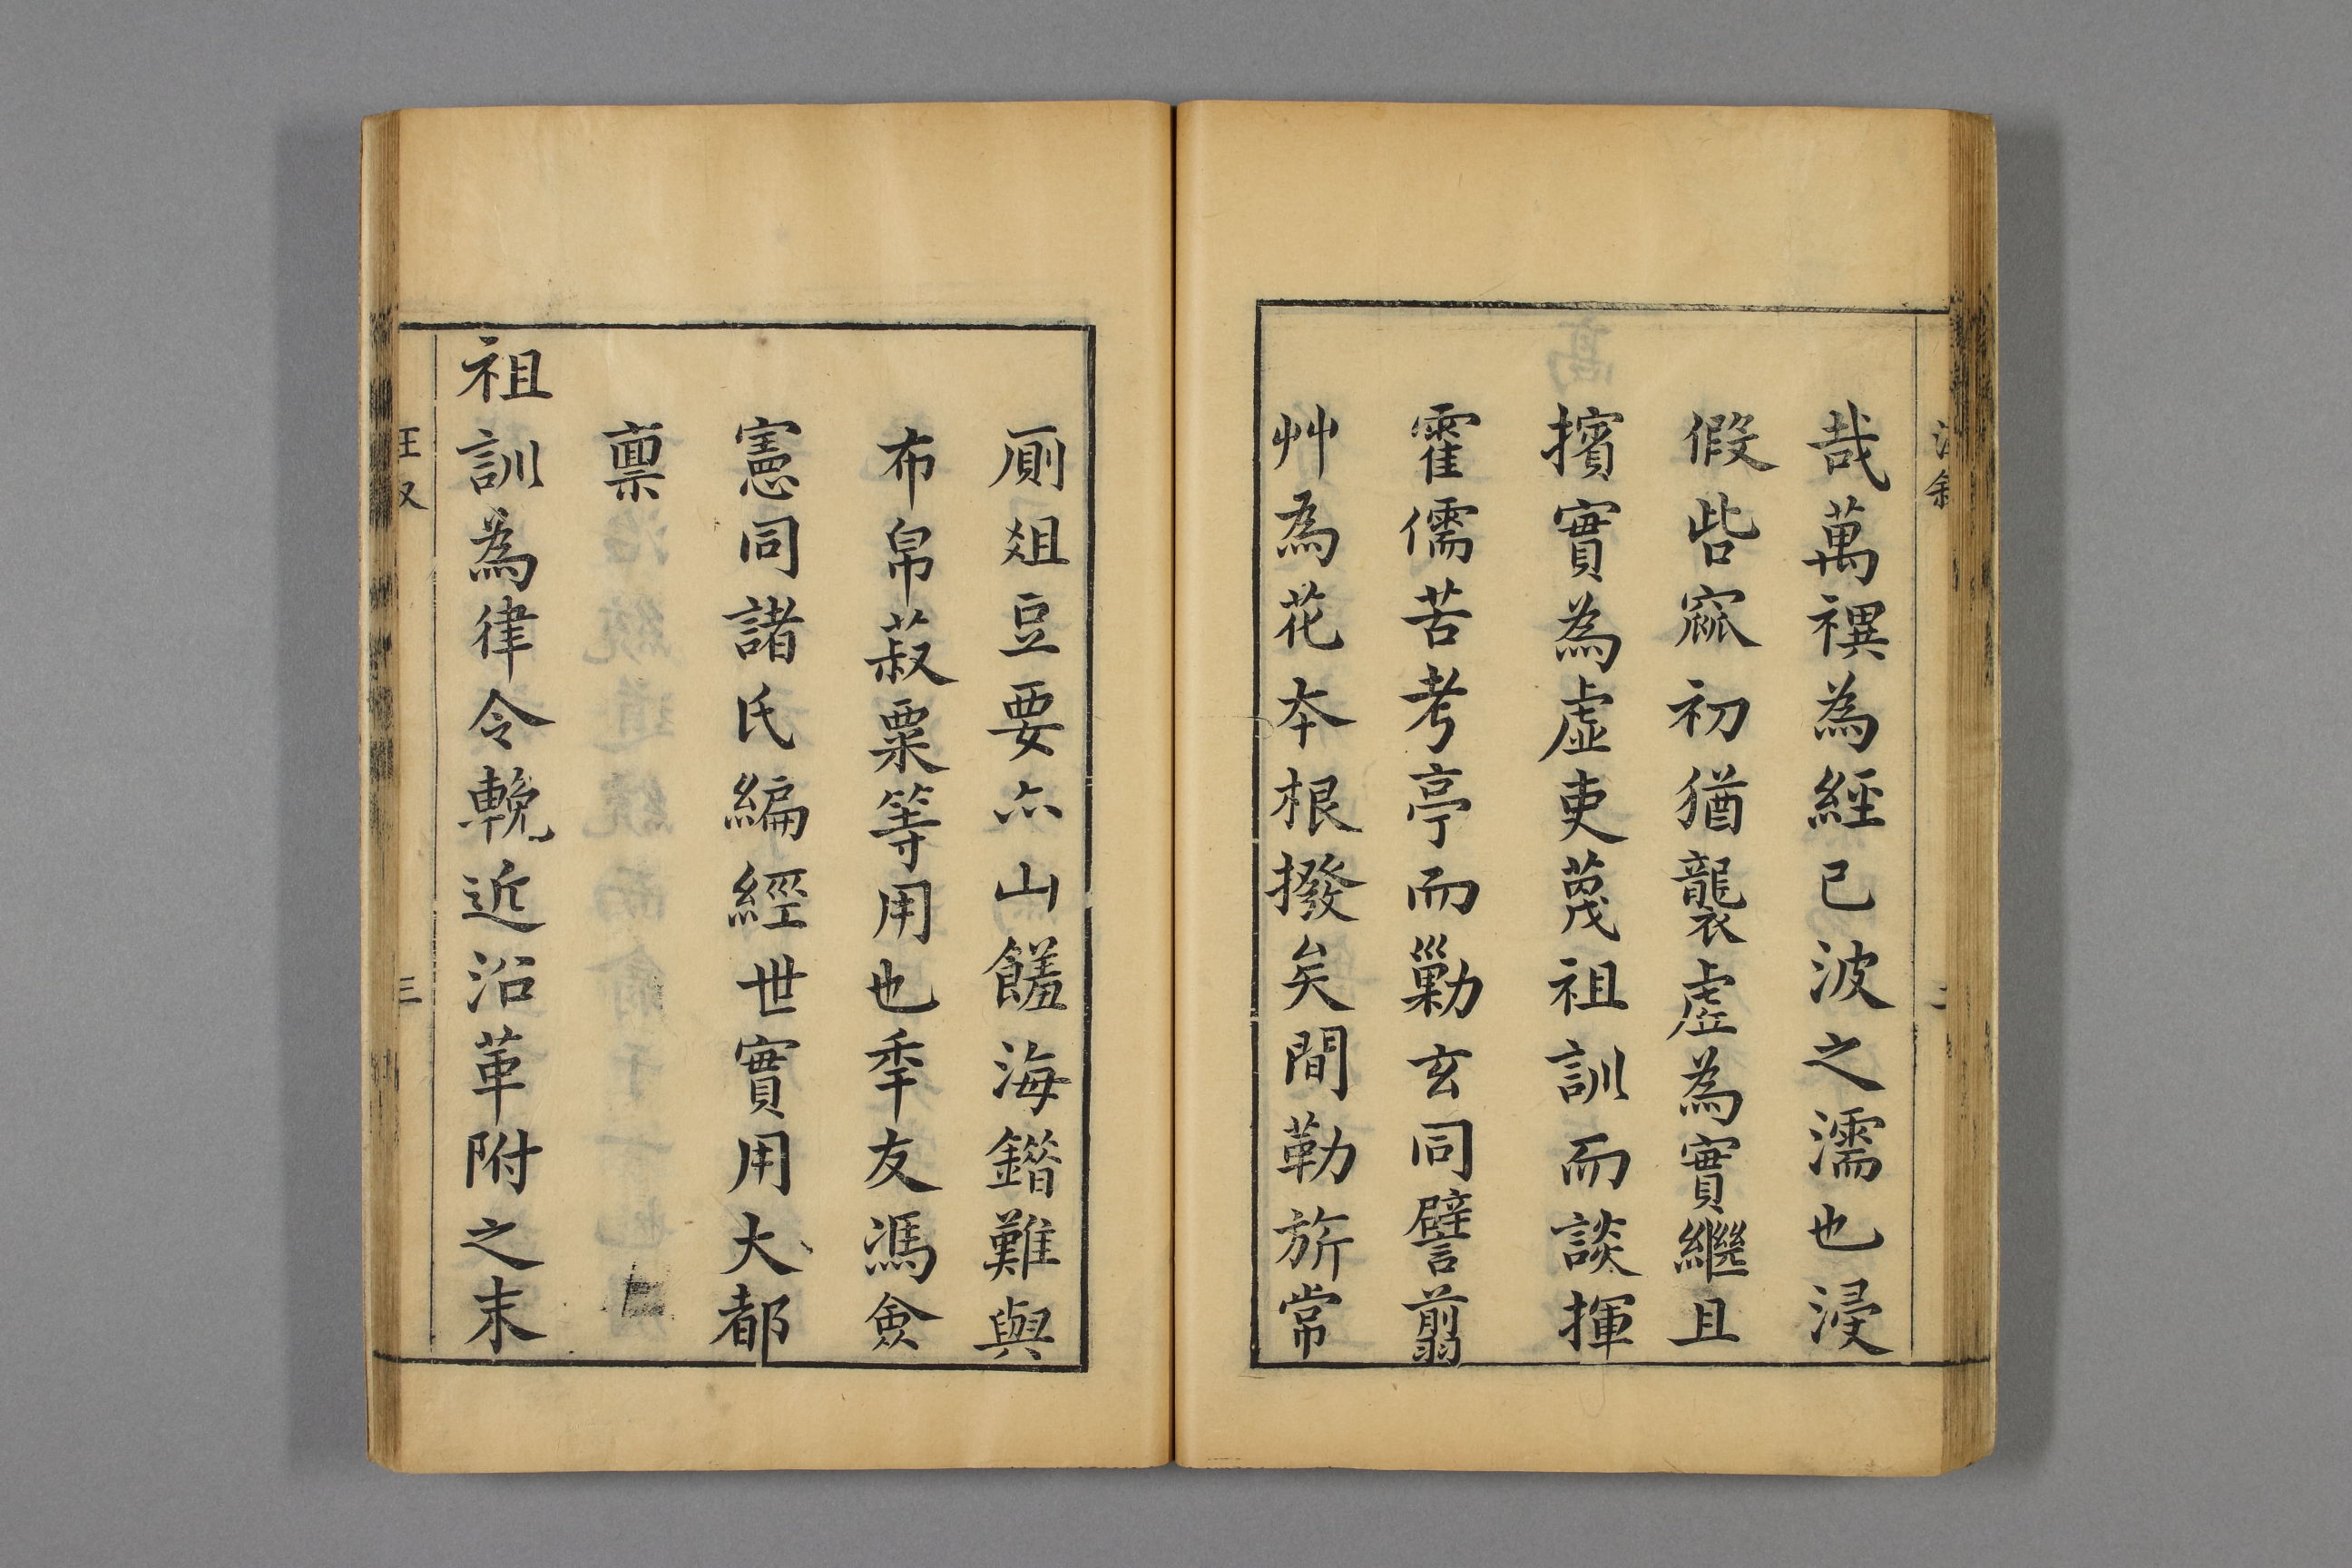 哉萬禩為經已波之濡也浸
假呰窳初猶襲虛為實繼且
擯實為虛吏蔑祖訓而談揮
霍儒苦考亭而勦玄同譬翦
艸為花本根撥矣間勒旂常
廁爼豆要亦山饈海錯難與
布帛菽粟等用也季友馮僉
憲同諸氏編經世實用大都
稟
祖訓為律令輓近沿革附之末
三